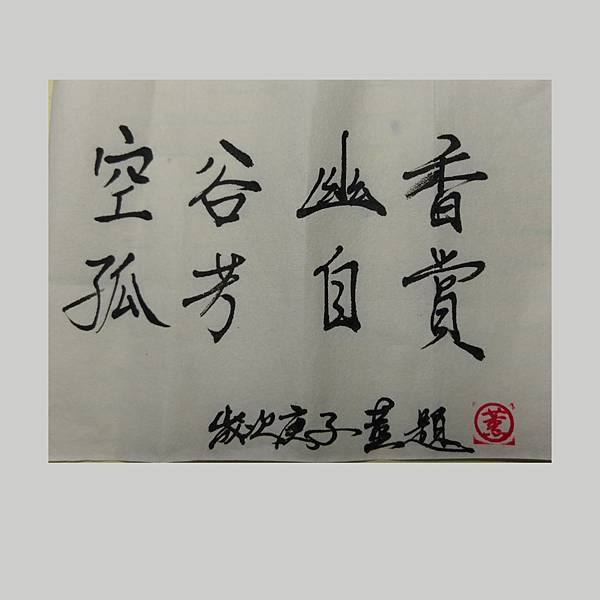 空谷幽香
孤芳自賞
歲次庚子薏題